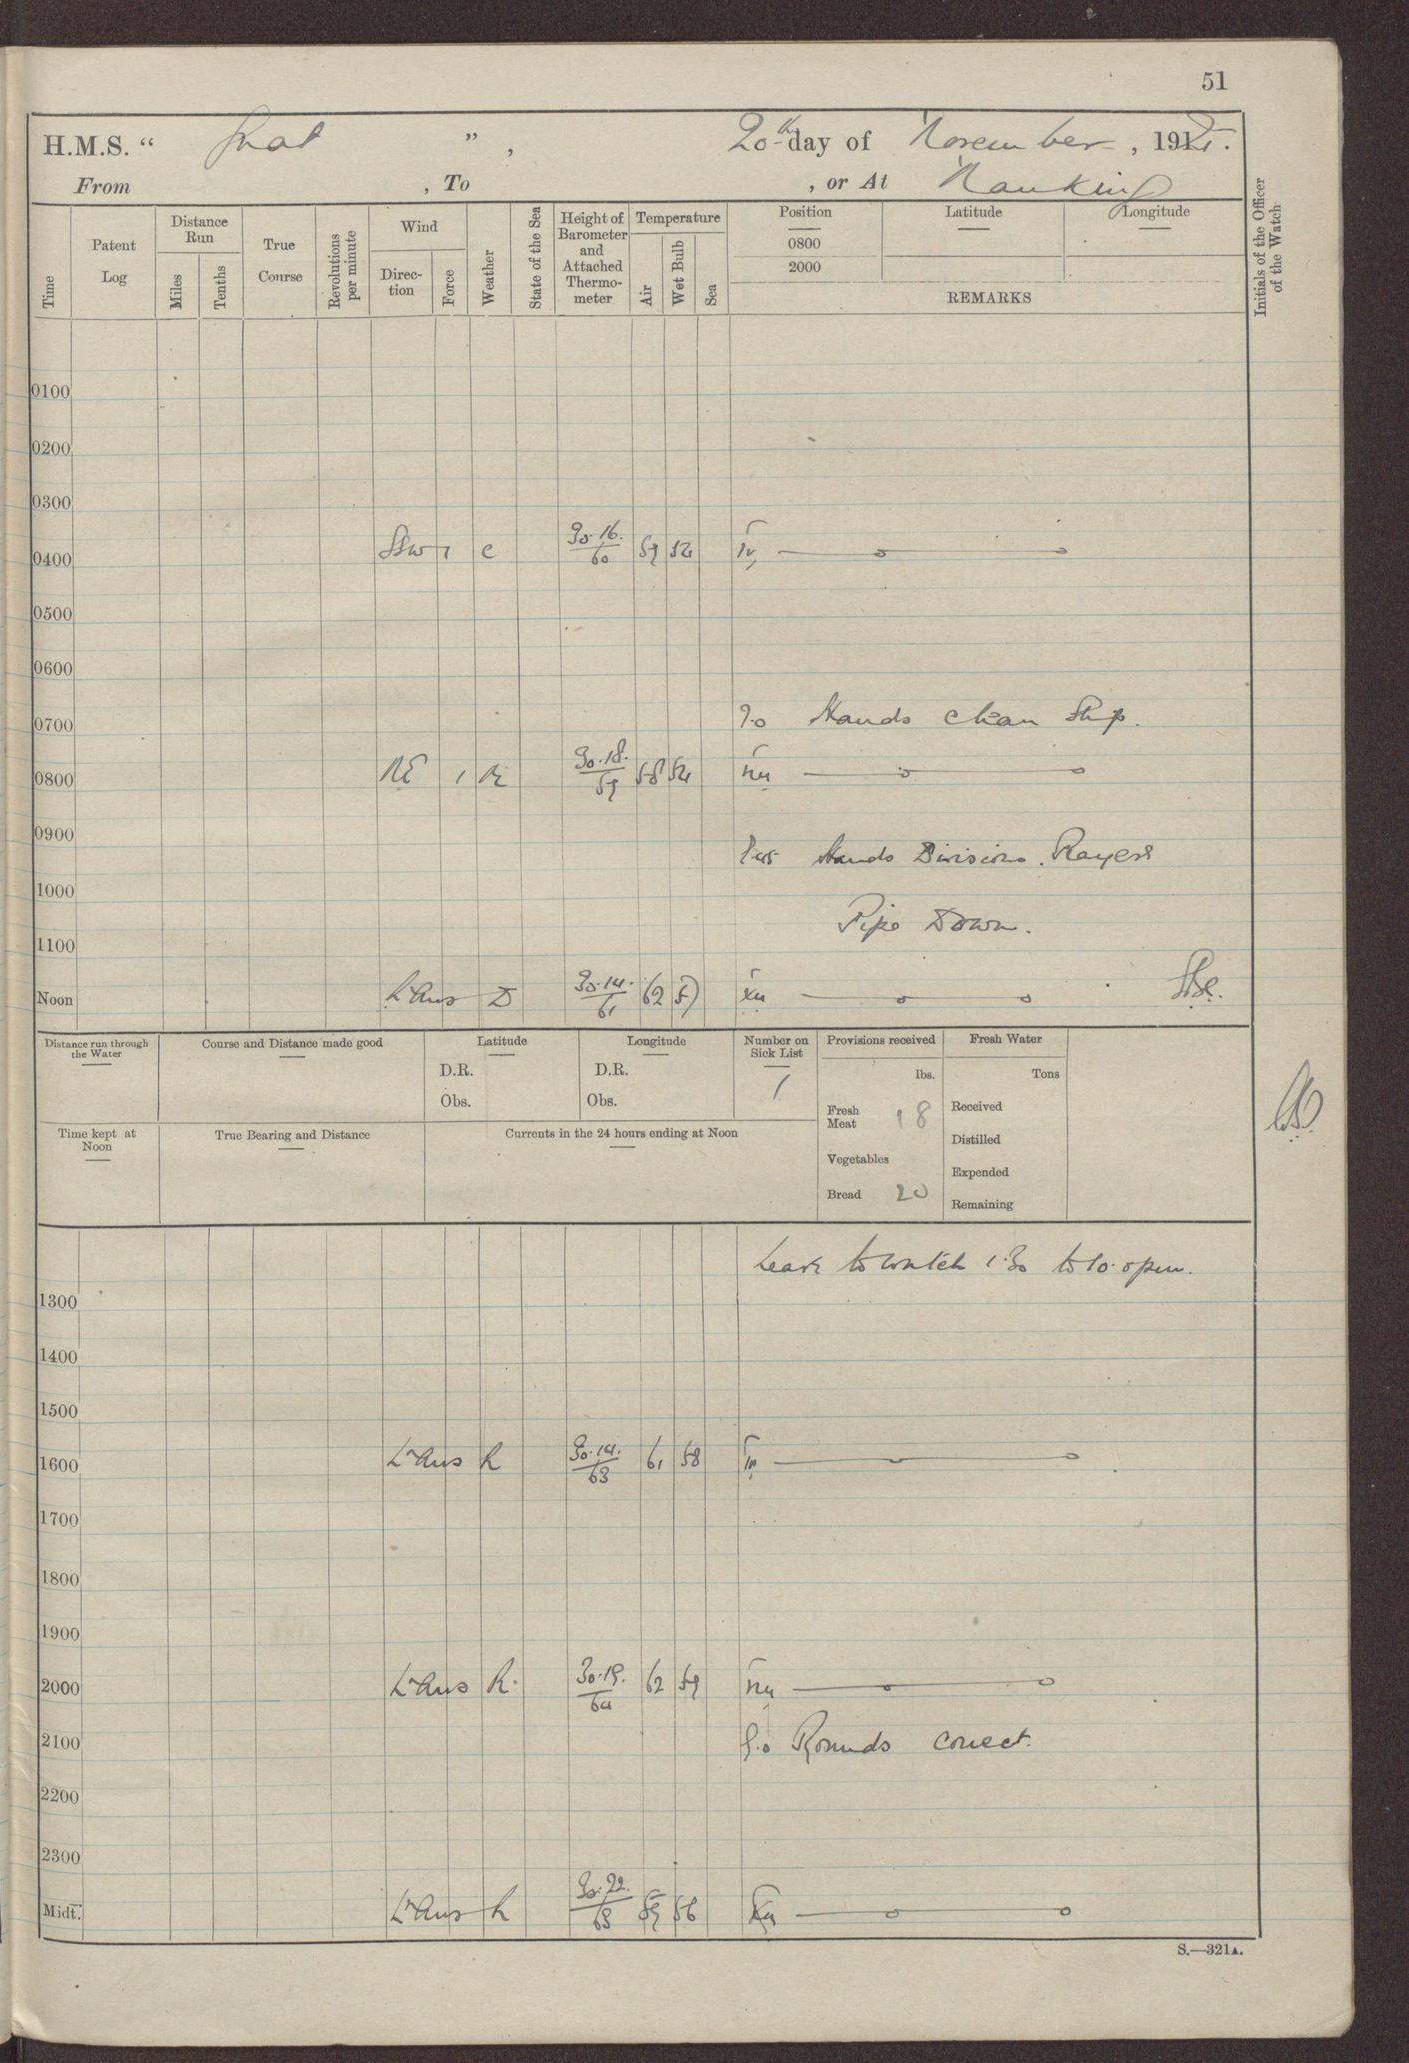 51
H.M.S. “ Gnat ” , 20th day of November , 192 .
From , To , or At Nanking
Time
Patent Log
Distance Run
Miles
Tenths
True Course
Revolutions per minute
Wind
Direc-tion
Force
Weather
State of the Sea
Height of Barometer and Attached Thermo-meter
Temperature
Air
Wet Bulb
Sea
Position
0800
2000
Latitude
Longitude
REMARKS
Initials of the Officer of the Watch
0100
0200
0300
0400 SSW 1 c 30.16. 60 59 54 IV
0500
0600
0700 7.0 Hands clean Ship.
0800 NE 1 R 30.18. 59 58 54 VIII
0900
9.45 Hands Divisions. Prayers
1000
Pipe Down.
1100
Noon Lt Airs D 30.14. 61 62 57 XII
Distance run through the Water
Course and Distance made good
Latitude
D.R.
Obs.
Longitude
D.R.
Obs.
Number on Sick List
1
Provisions received
lbs.
Fresh Meat 18
Vegetables
Bread 20
Fresh Water
Tons
Received
Distilled
Expended
Remaining
Time kept at Noon
True Bearing and Distance
Currents in the 24 hours ending at Noon
Leave to watch 1.30 to 10.0pm.
1300
1400
1500
1600 Lt Airs R 30.14. 63 61 58 IV
1700
1800
1900
2000 Lt Airs R. 30.19. 64 62 59 VIII
2100 9.0 Rounds correct.
2200
2300
Midt. Lt Airs R 30.22. 63 59 56 XII
S.—321A.